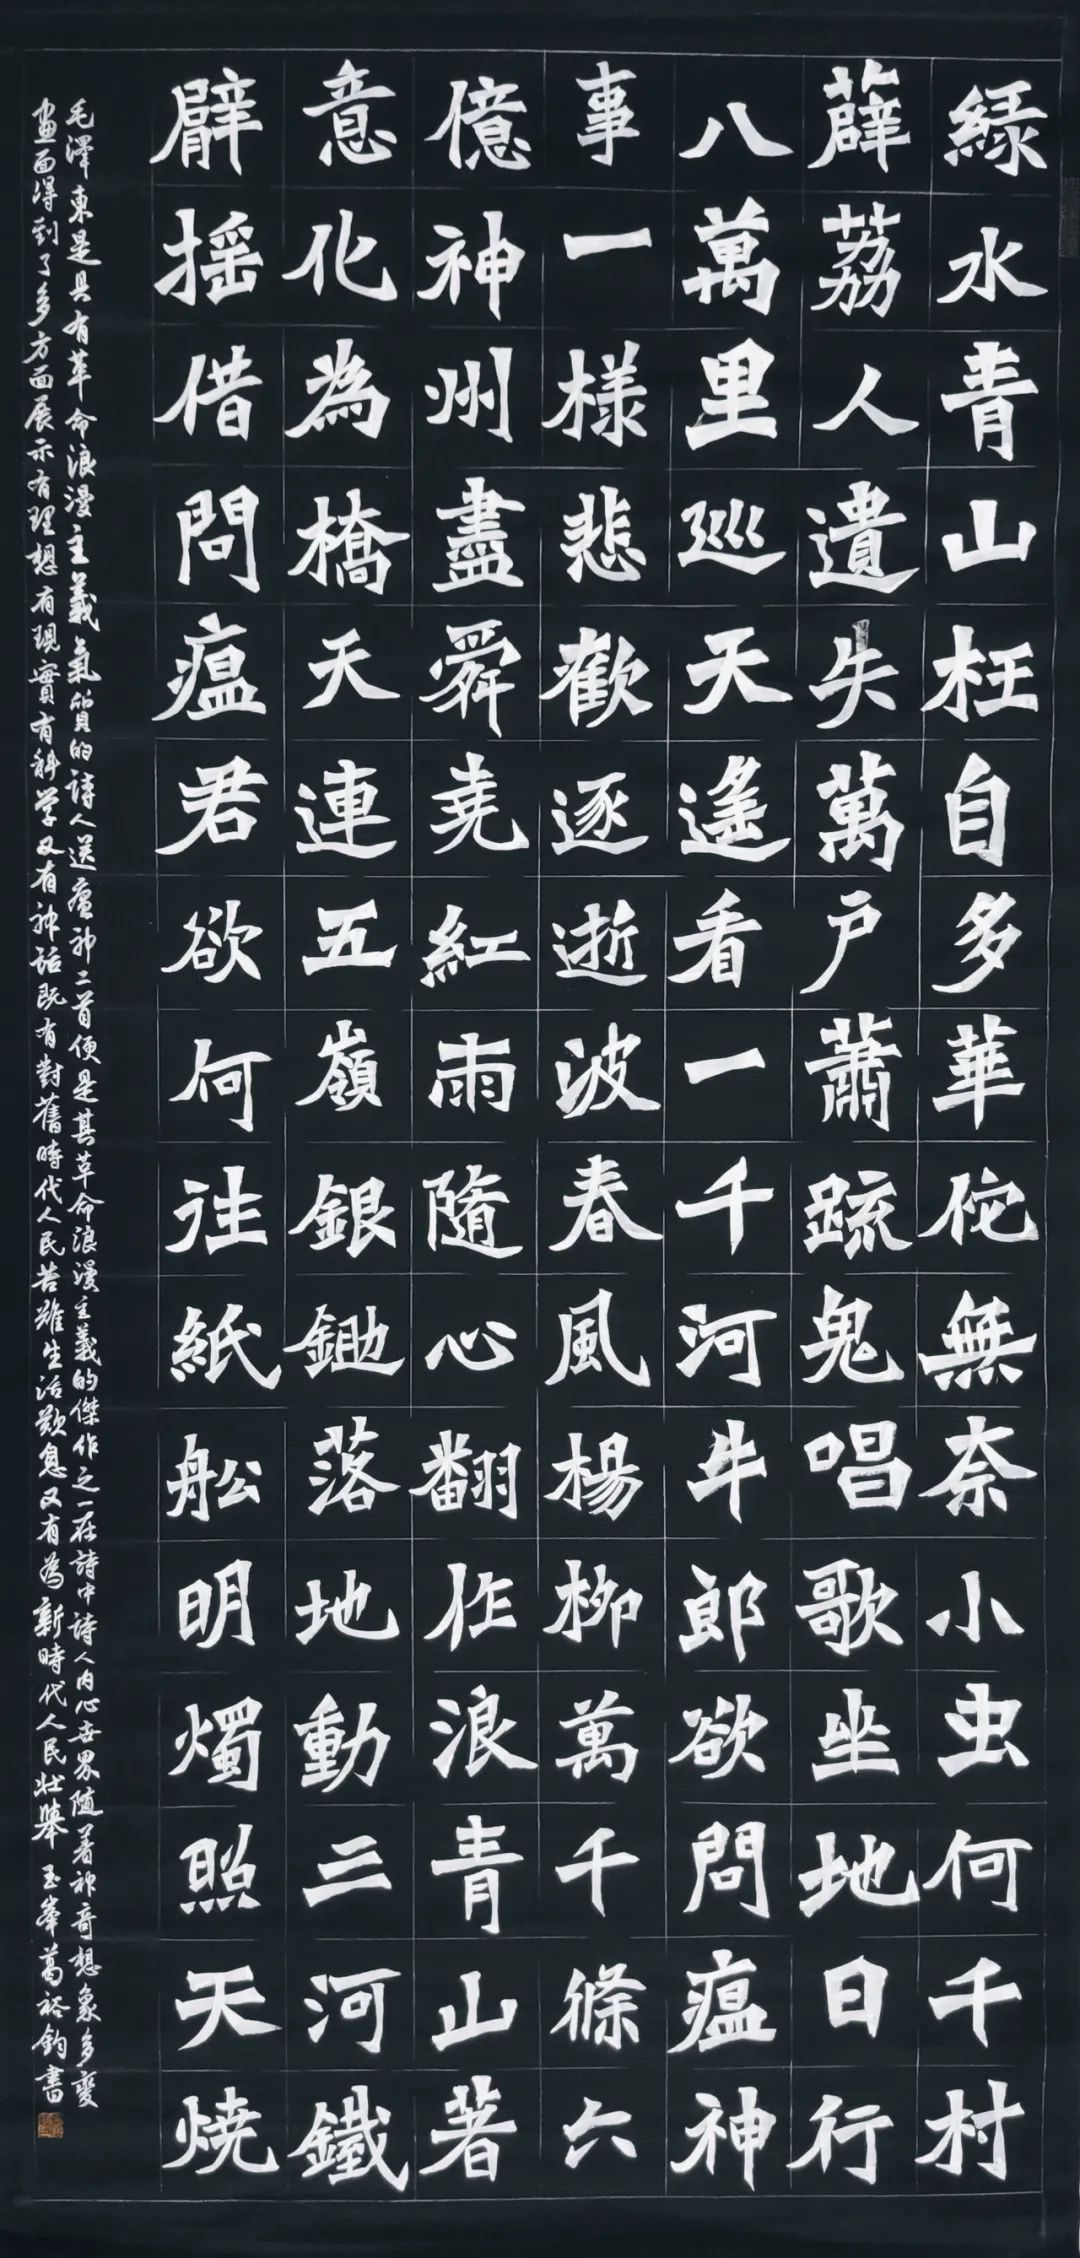 綠水青山枉自多華佗無奈小虫何千村
薜荔人遺失萬戶蕭疏鬼唱歌坐地日行
八萬里巡天遙看一千河牛郎欲問瘟神
事一樣悲歡逐逝波春風楊柳萬千條六
億神州盡舜堯紅雨隨心翻作浪青山著
意化為橋天連五嶺銀鋤落地動三河鐵
臂搖借問瘟君欲何往紙船明燭照天燒
毛澤東是具有革命浪漫主義氣質的詩人送瘟神二首便是其革命浪漫主義的傑作之一在詩中詩人內心世界随著神奇想象多變
畫面得到了多方面展示有理想有現實有科学又有神話既有對舊時代人民苦難生活歎息又有為新時代人民壯舉玉峯葛裕鈞書